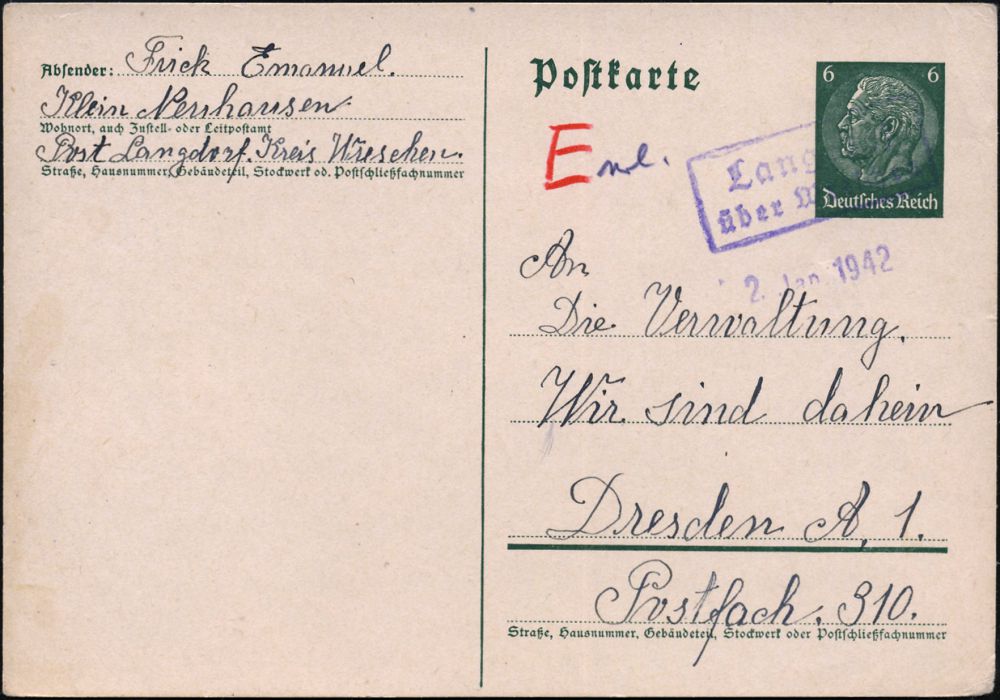 Absender: Frick Emanuel.
Klein Neuhausen
Wohnort, auch Zustell- oder Leitpostamt
Post Langdorf. Kreis Wreschen.
Straße, Hausnummer, Gebäudeteil, Stockwerk od. Postschließfachnummer
Postkarte
6 6
Deutsches Reich
E
Lang
über
2. Jan. 1942
An
Die Verwaltung.
Wir sind daheim
Dresden A, 1.
Postfach. 310.
Straße, Hausnummer, Gebäudeteil, Stockwerk oder Postschließfachnummer